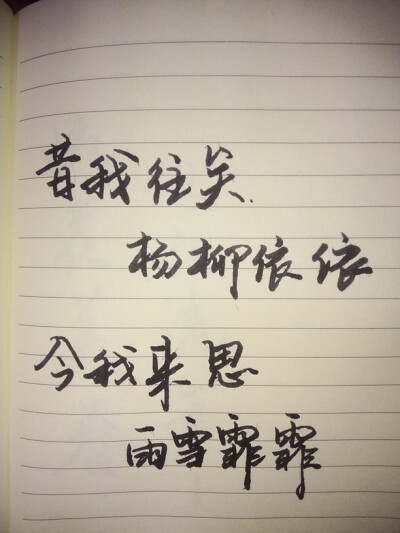 昔我往矣.
杨柳依依
今我来思
雨雪霏霏